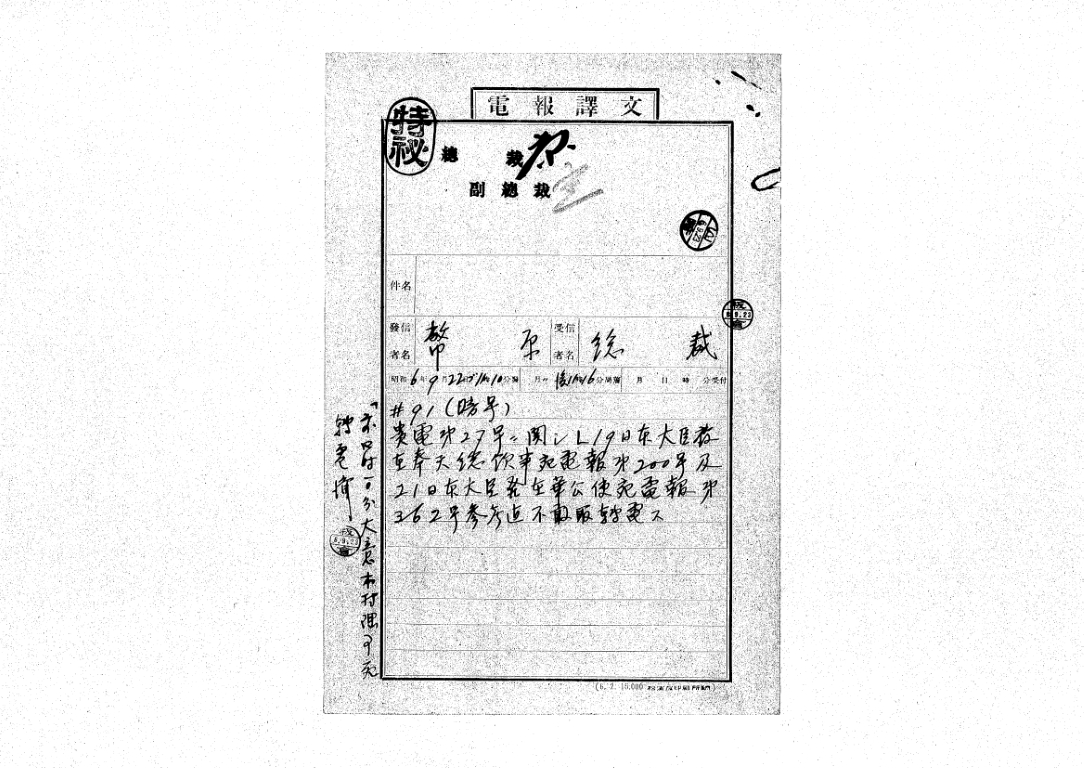 電報譯文
特秘
總裁
副總裁
件名
發信者名 幣原
受信者名 総裁
昭和6年9月22日 分發 月 日 分局着 月 日 時 分受付
#91(暗号)
貴電第27号ニ関シ19日本大臣発
在奉天総領事宛電報第200号及
21日本大臣発在華公使宛電報第
362号参考迄不取敢転電ス
転電済
大意木村理事宛
(6. 2. 10,000